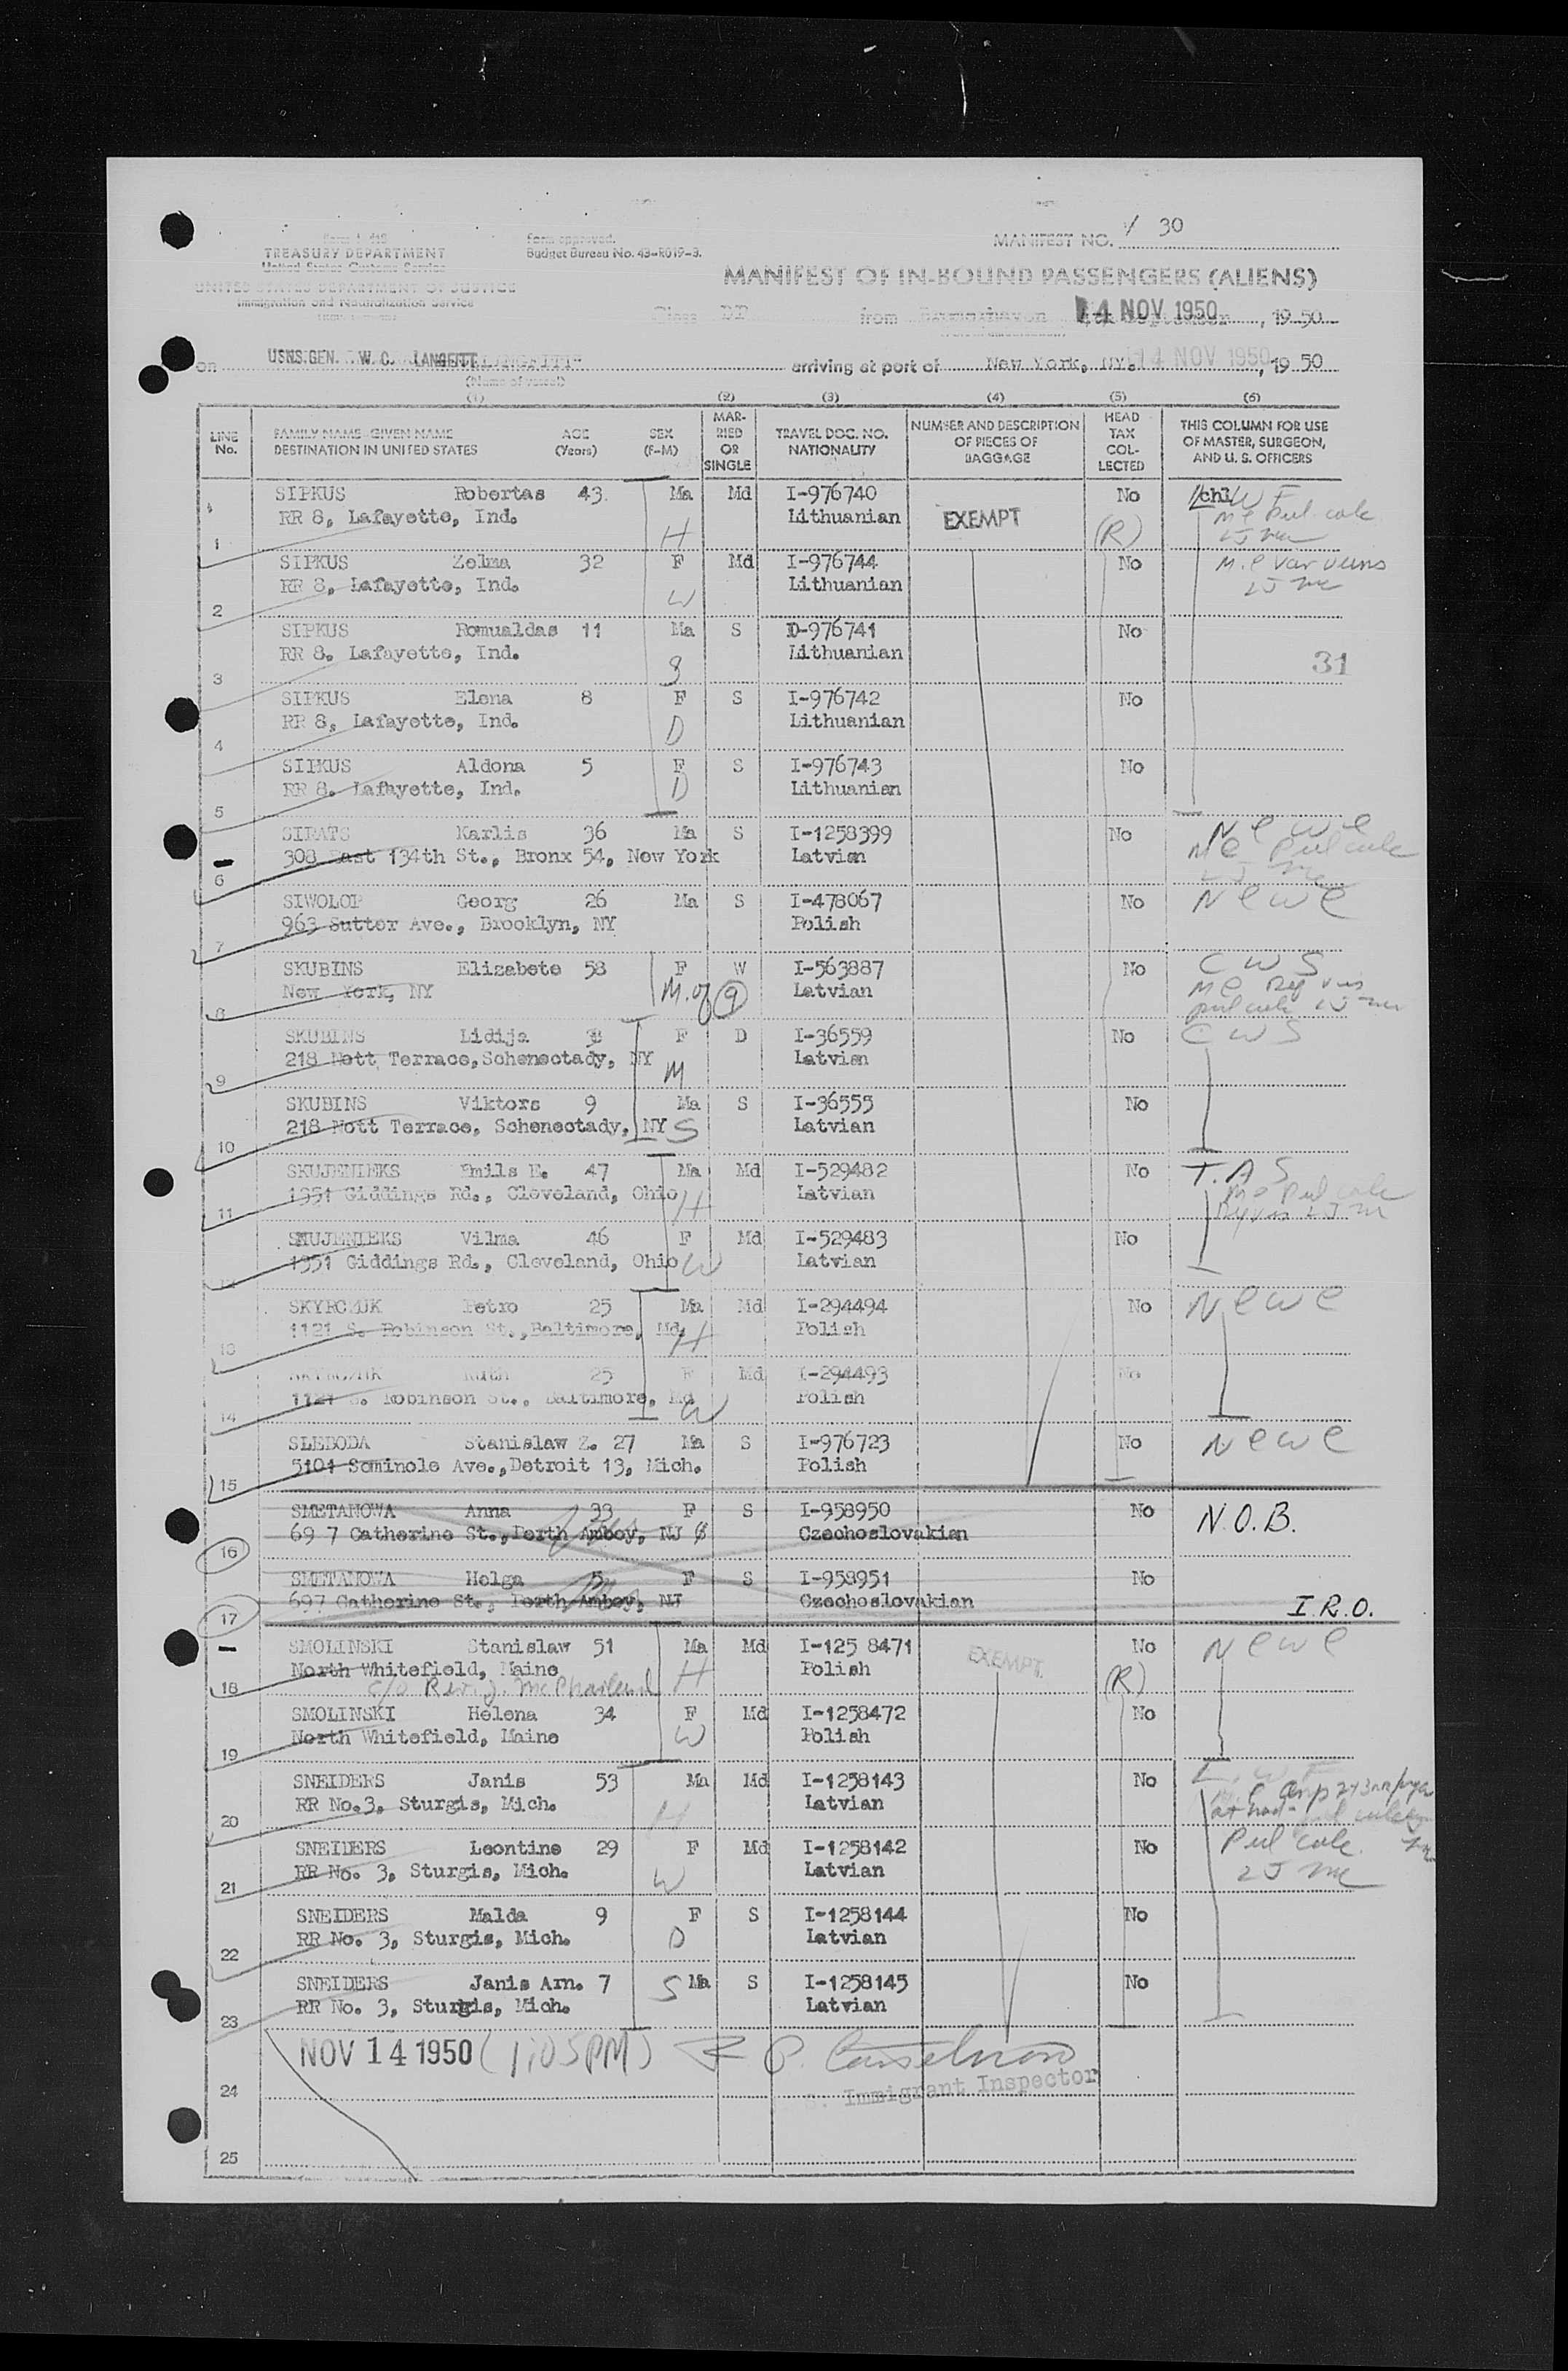 MANIFEST NO. 30
TREASURY DEPARTMENT
United States Customs Service
UNITED STATES DEPARTMENT OF JUSTICE
Immigration and Naturalization Service
Form approved.
Budget Bureau No. 43-R019-3.
MANIFEST OF IN-BOUND PASSENGERS (ALIENS)
Class DP from 14 NOV 1950, 1950
on USNS GEN. W. C. LANGFITT arriving at port of New York, NY. 14 NOV 1950, 1950
(Name of vessel)
(1) (2) (3) (4) (5) (6)
LINE No. FAMILY NAME-GIVEN NAME DESTINATION IN UNITED STATES AGE (Years) SEX (F-M) MARRIED OR SINGLE TRAVEL DOC. NO. NATIONALITY NUMBER AND DESCRIPTION OF PIECES OF BAGGAGE HEAD TAX COLLECTED THIS COLUMN FOR USE OF MASTER, SURGEON, AND U. S. OFFICERS
SIPKUS Robertas 43 Ma Md I-976740 No
RR 8, Lafayette, Ind. H Lithuanian EXEMPT (R)
1
SIPKUS Zelma 32 F Md I-976744 No
RR 8, Lafayette, Ind. W Lithuanian
2
SIPKUS Romualdas 11 Ma S D-976741 No
RR 8, Lafayette, Ind. S Lithuanian 31
3
SIPKUS Elena 8 F S I-976742 No
RR 8, Lafayette, Ind. D Lithuanian
4
SIPKUS Aldona 5 F S I-976743 No
RR 8, Lafayette, Ind. D Lithuanian
5
SIPATS Karlis 36 Ma S I-1258399 No
308 East 134th St., Bronx 54, New York Latvian
6
SIWOLOP Georg 26 Ma S I-478067 No NCWC
963 Sutter Ave., Brooklyn, NY Polish
7
SKUBINS Elizabete 58 F W I-563887 No CWS
New York, NY M. of 9 Latvian
8
SKUBINS Lidija F D I-36559 No CWS
218 Nott Terrace, Schenectady, NY M Latvian
9
SKUBINS Viktors 9 Ma S I-36555 No
218 Nott Terrace, Schenectady, NY S Latvian
10
SKUJENIEKS Emils E. 47 Ma Md I-529482 No T.A S
1951 Giddings Rd., Cleveland, Ohio H Latvian
11
SKUJENIEKS Vilma 46 F Md I-529483 No
1951 Giddings Rd., Cleveland, Ohio W Latvian
12
SKYRCZUK Petro 25 Ma Md I-294494 No NCWC
1121 S. Robinson St., Baltimore, Md. H Polish
13
Ruth 25 F Md I-294493 No
1121 S. Robinson St., Baltimore, Md W Polish
14
SLEBODA Stanislaw Z. 27 Ma S I-976723 No NCWC
5101 Seminole Ave., Detroit 13, Mich. Polish
15
SMETANOWA Anna 33 F S I-958950 No N.O.B.
69 7 Catherine St., Perth Amboy, NJ Czechoslovakian
16
SMETANOWA Helga 5 F S I-958951 No
697 Catherine St., Perth Amboy, NJ Czechoslovakian I.R.O.
17
SMOLINSKI Stanislaw 51 Ma Md I-125 8471 No NCWC
North Whitefield, Maine H Polish EXEMPT (R)
18 c/o Rev. J.
SMOLINSKI Helena 34 F Md I-1258472 No
North Whitefield, Maine W Polish
19
SNEIDERS Janis 53 Ma Md I-1258143 No
RR No.3, Sturgis, Mich. H Latvian
20
SNEIDERS Leontine 29 F Md I-1258142 No
RR No. 3, Sturgis, Mich. W Latvian
21
SNEIDERS Malda 9 F S I-1258144 No
RR No. 3, Sturgis, Mich. D Latvian
22
SNEIDERS Janis Arn. 7 S Ma S I-1258145 No
RR No. 3, Sturgis, Mich. Latvian
23
NOV 14 1950 (1:05PM)
Immigrant Inspector
24
25